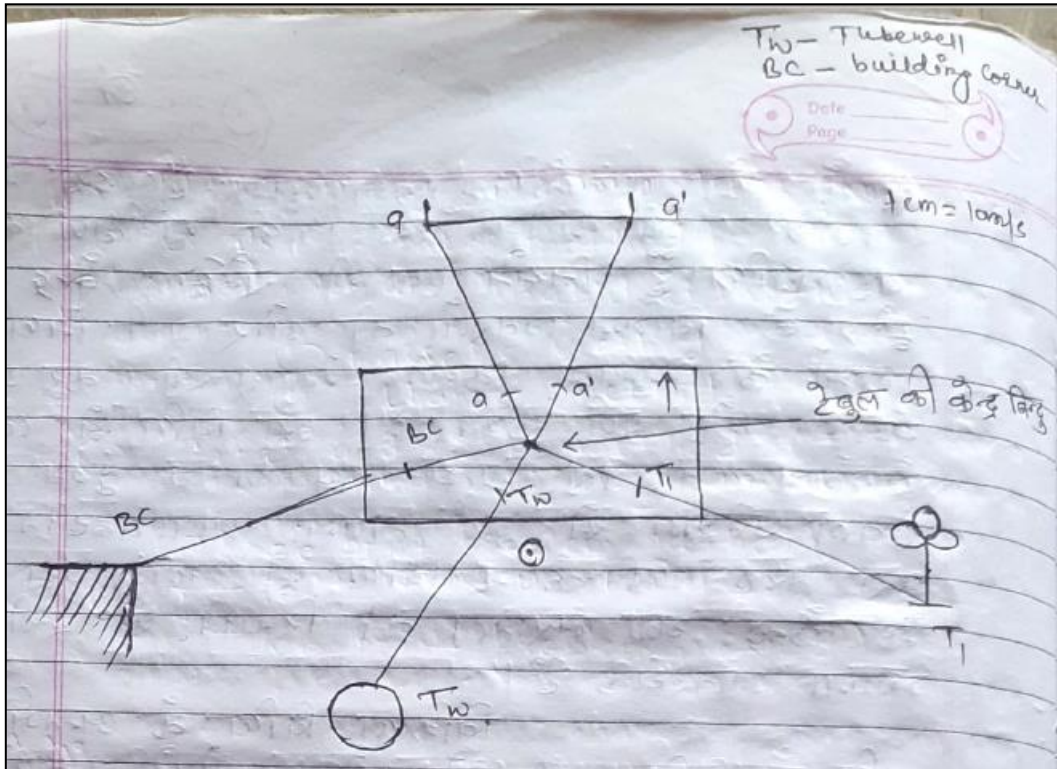 Tw - Tubewell
BC - building corner
Date
Page
1 cm = 10m/s
a
a'
a
a'
BC
टेबुल की केन्द्र बिन्दु
T1
Tw
BC
T1
Tw